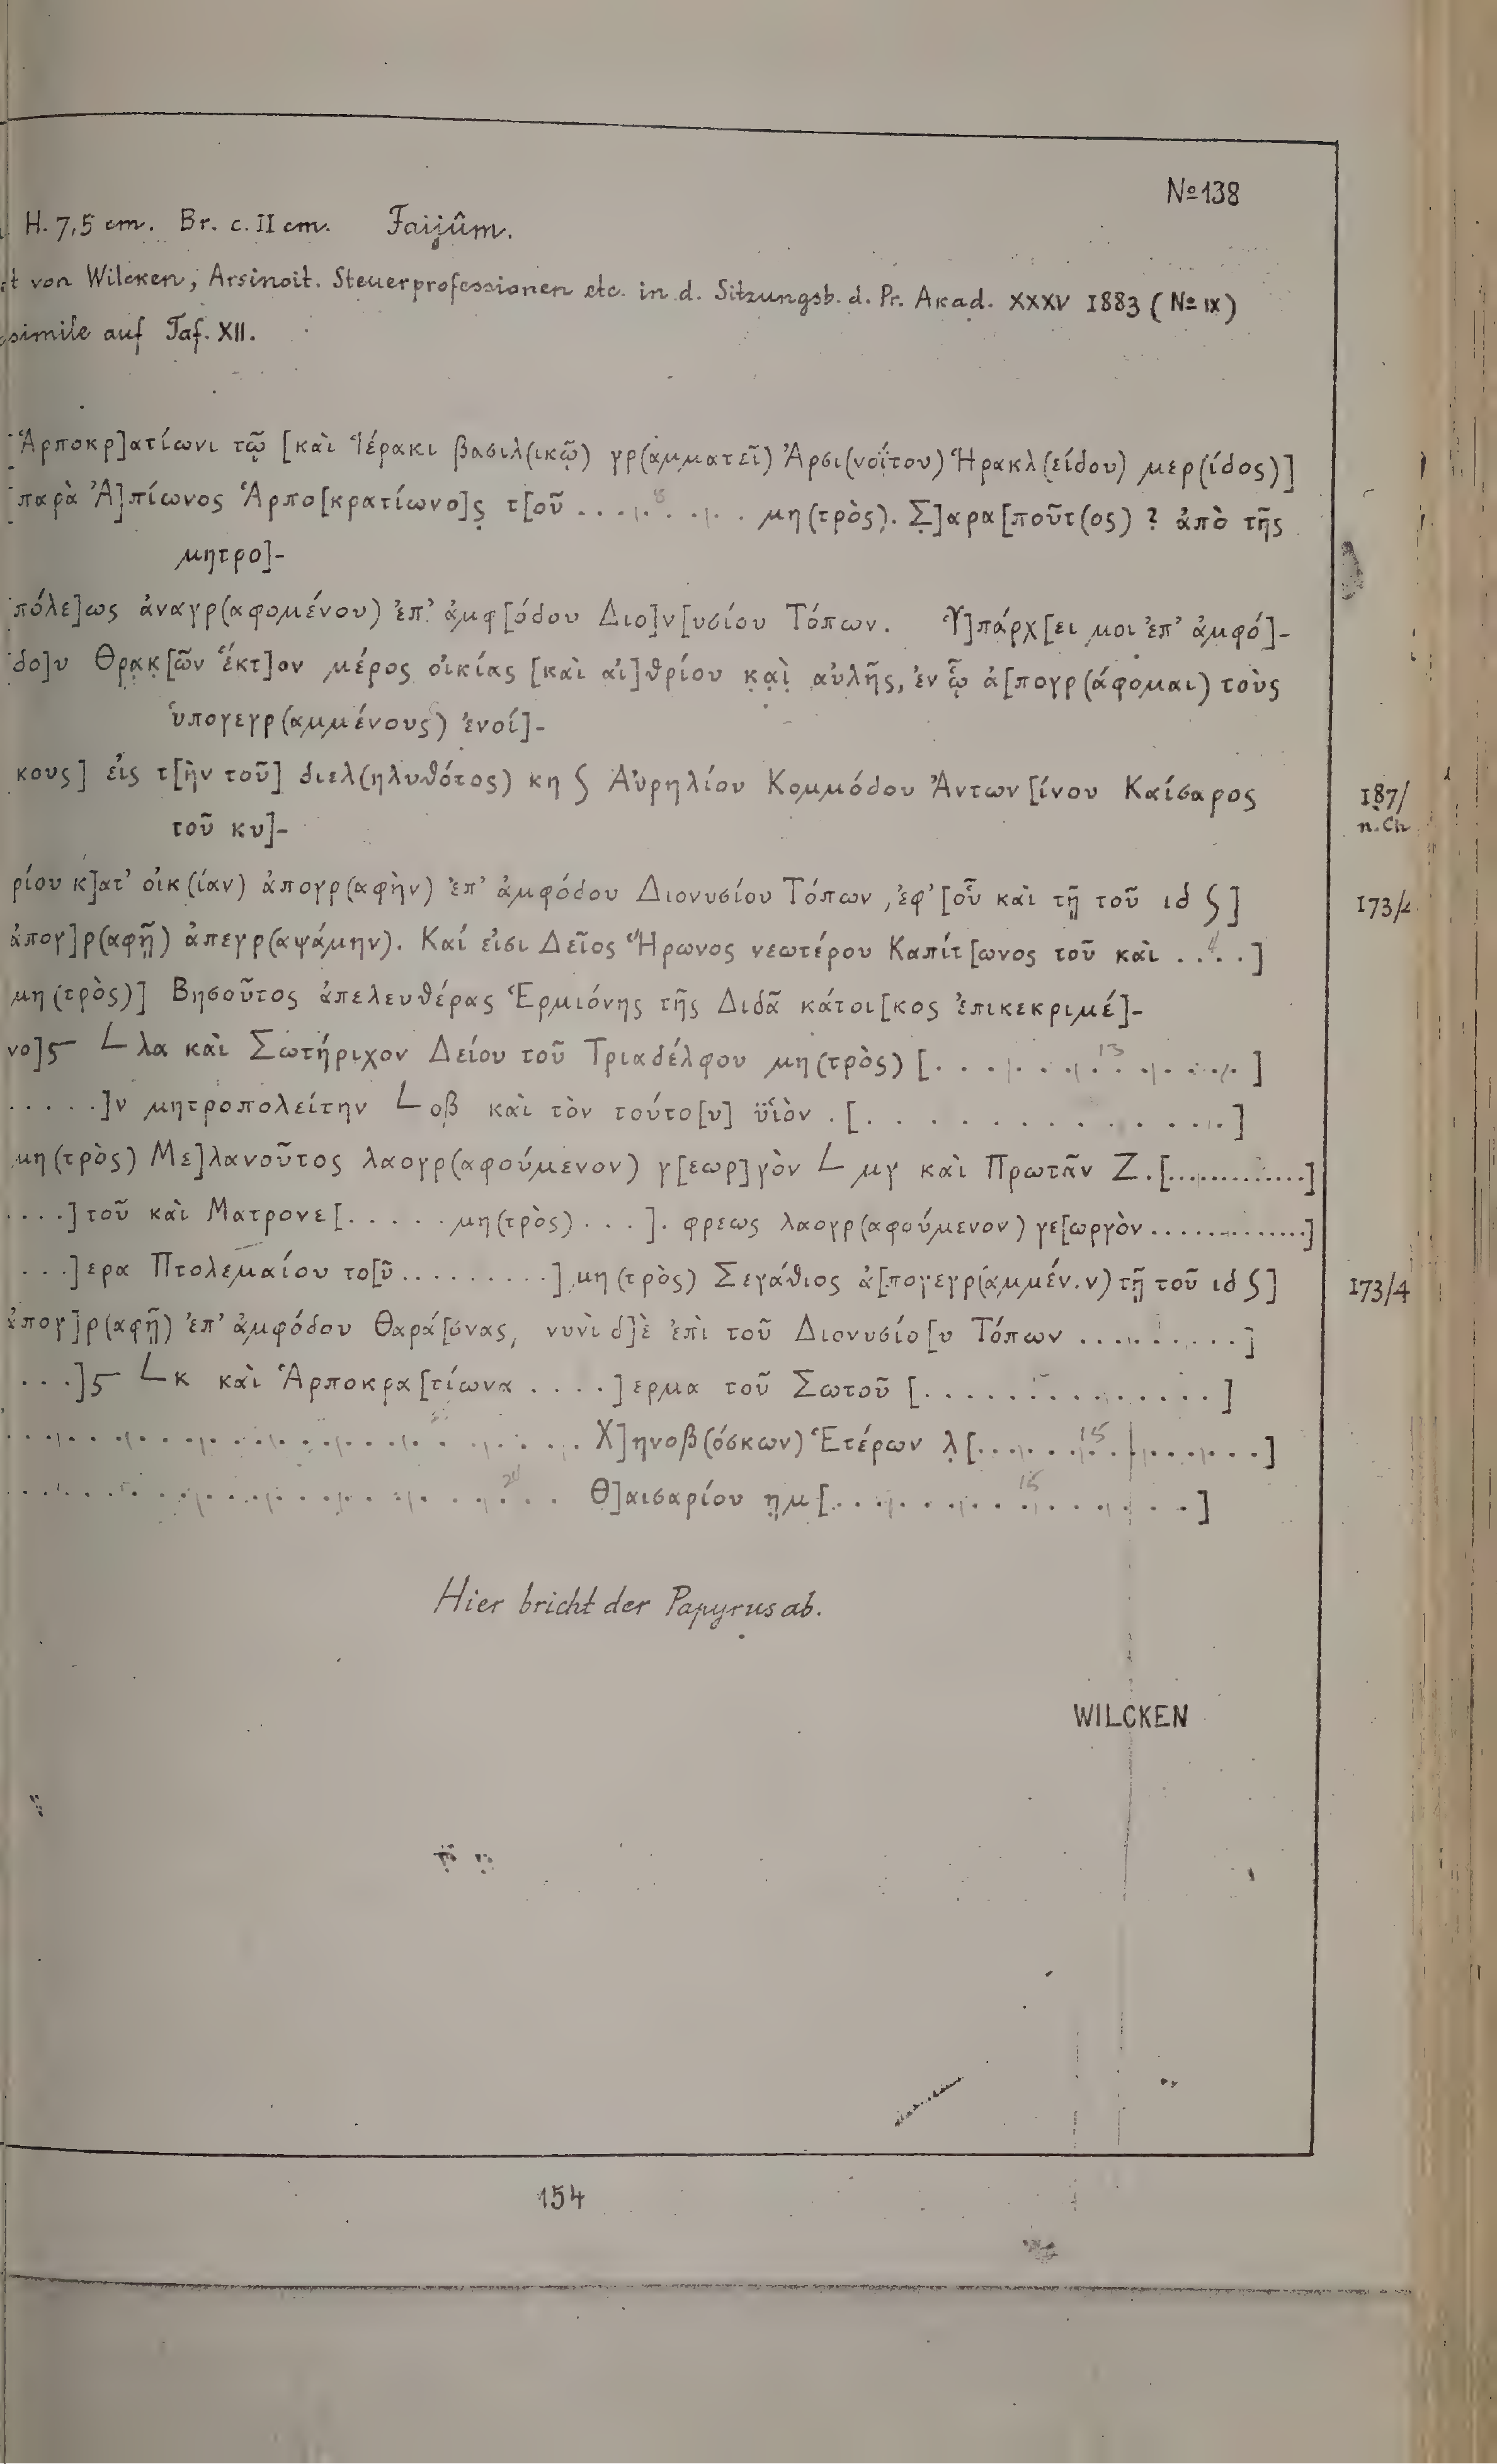 № 138
H. 7,5 cm. Br. c. II cm. Faijûm.
von Wilcken, Arsinoit. Steuerprofessionen etc. in d. Sitzungsb. d. Pr. Akad. XXXV 1883 (№ IX)
simile auf Taf. XII.
[Ἁρποκρ]ατίωνι τῷ [καὶ Ἱέρακι βασιλ(ικῷ) γρ(αμματεῖ) Ἀρσι(νοΐτου) Ἡρακλ(είδου) μερ(ίδος)]
[παρὰ Ἀ]πίωνος Ἁρπο[κρατίωνο]ς τ[οῦ . . . . . . . . μη(τρὸς). Σ]αρα[ποῦτ(ος) ? ἀπὸ τῆς
μητρο]-
πόλε]ως ἀναγρ(αφομένου) ἐπ' ἀμφ[όδου Διο]ν[υσίου Τόπων. Ὑ]πάρχ[ει μοι ἐπ' ἀμφό]-
δο]υ Θρακ[ῶν ἕκτ]ον μέρος οἰκίας [καὶ αἰ]θρίου καὶ αὐλῆς, ἐν ᾧ ἀ[πογρ(άφομαι) τοὺς
ὑπογεγρ(αμμένους) ἐνοί]-
κους] εἰς τ[ὴν τοῦ] διελ(ηλυθότος) κη ʃ Αὐρηλίου Κομμόδου Ἀντων[ίνου Καίσαρος 187/
τοῦ κυ]- n. Ch
ρίου κ]ατ' οἰκ(ίαν) ἀπογρ(αφὴν) ἐπ' ἀμφόδου Διονυσίου Τόπων, ἐφ' [οὗ καὶ τῇ τοῦ ιδ ʃ] 173/
ἀπογ]ρ(αφῇ) ἀπεγρ(αψάμην). Καί εἰσι Δεῖος Ἥρωνος νεωτέρου Καπίτ[ωνος τοῦ καὶ . . . .]
μη(τρὸς)] Βησοῦτος ἀπελευθέρας Ἑρμιόνης τῆς Διδᾶ κάτοι[κος ἐπικεκριμέ]-
νο]ς L λα καὶ Σωτήριχον Δείου τοῦ Τριαδέλφου μη(τρὸς) [. . . . . . . . . . . . . ]
. . . . .]ν μητροπολείτην L οβ καὶ τὸν τούτο[υ] ϋἱὸν . [. . . . . . . . . . . . . .]
μη(τρὸς) Με]λανοῦτος λαογρ(αφούμενον) γ[εωρ]γὸν L μγ καὶ Πρωτᾶν Ζ.[.............]
. . . .] τοῦ καὶ Ματρονε[. . . . . μη(τρὸς) . . . ]. φρεως λαογρ(αφούμενον) γε[ωργὸν ..............]
. . .]ερα Πτολεμαίου το[ῦ . . . . . . . . .] μη(τρὸς) Σεγάθιος ἀ[πογεγρ(αμμέν.ν) τῇ τοῦ ιδ ʃ] 173/4
ἀπογ]ρ(αφῇ) ἐπ' ἀμφόδου Θαρά[σνας, νυνὶ δ]ὲ ἐπὶ τοῦ Διονυσίο[υ Τόπων . . . . . . . . . .]
. . .]ς L κ καὶ Ἁρποκρα[τίωνα . . . .]ερμα τοῦ Σωτοῦ [. . . . . . . . . . . . . . ]
. . . . . . . . . . . . . . . . . . . . Χ]ηνοβ(όσκων) Ἑτέρων λ[. . . . . . . . . . . . . . .]
. . . . . . . . . . . . . . . . . . . . Θ]αισαρίου ημ[. . . . . . . . . . . . . . .]
Hier bricht der Papyrus ab.
WILCKEN
154